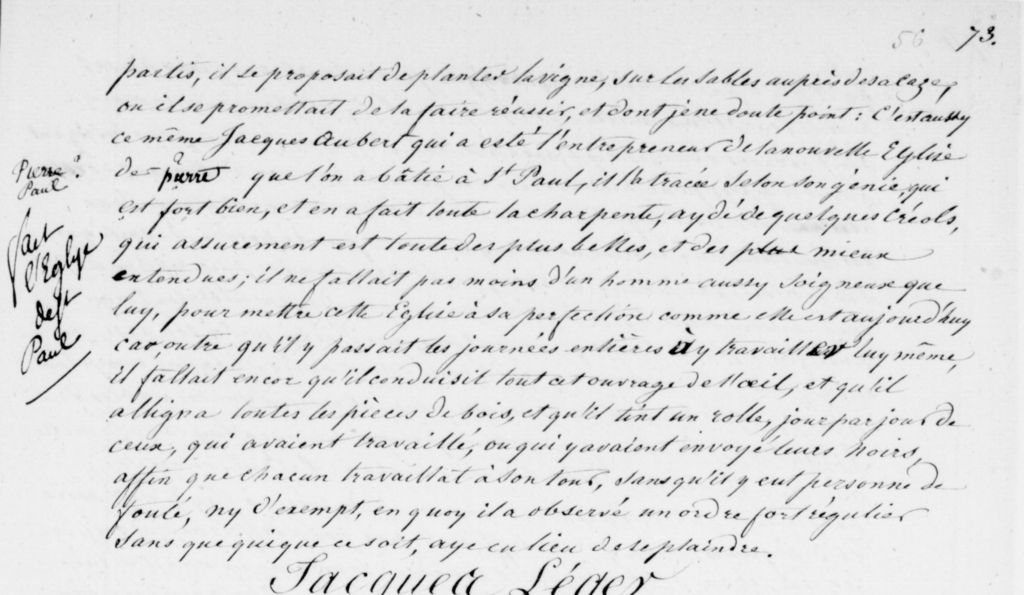 56 73.
partis, il se proposait de planter la vigne, sur les sables auprès de sa case,
ou il se promettait de la faire réussir, et dont je ne doute point : C'est aussy
ce même Jacques Aubert qui a esté l'entrepreneur de la nouvelle Eglise
de pierre que l'on a bâtie à St. Paul, il l'a tracée selon son génie, qui
est fort bien, et en a fait toute la charpente, aydé de quelques Créols,
qui assurement est toute des plus belles, et des plus mieux
entendues; il ne fallait pas moins d'un homme aussy soigneux que
luy, pour mettre cette Eglise à sa perfection comme elle est aujourd'huy
car, outre qu'il y passait les journées entières à y travailler luy même,
il fallait encor qu'il conduisit tout cet ouvrage de l'œil, et qu'il
alligna toutes les pièces de bois, et qu'il tint un rolle, jour par jour de
ceux, qui avaient travaillé, ou qui y avaient envoyé leurs noirs,
affin que chacun travaillât à son tour, sans qu'il y eut personne de
foulé, ny d'exempt, en quoy il a observé un ordre fort régulier
sans que quique ce soit, aye eu lieu de se plaindre.
Jacques Léger
Pierre?
Paul
fait
l'Eglise
de St
Paul